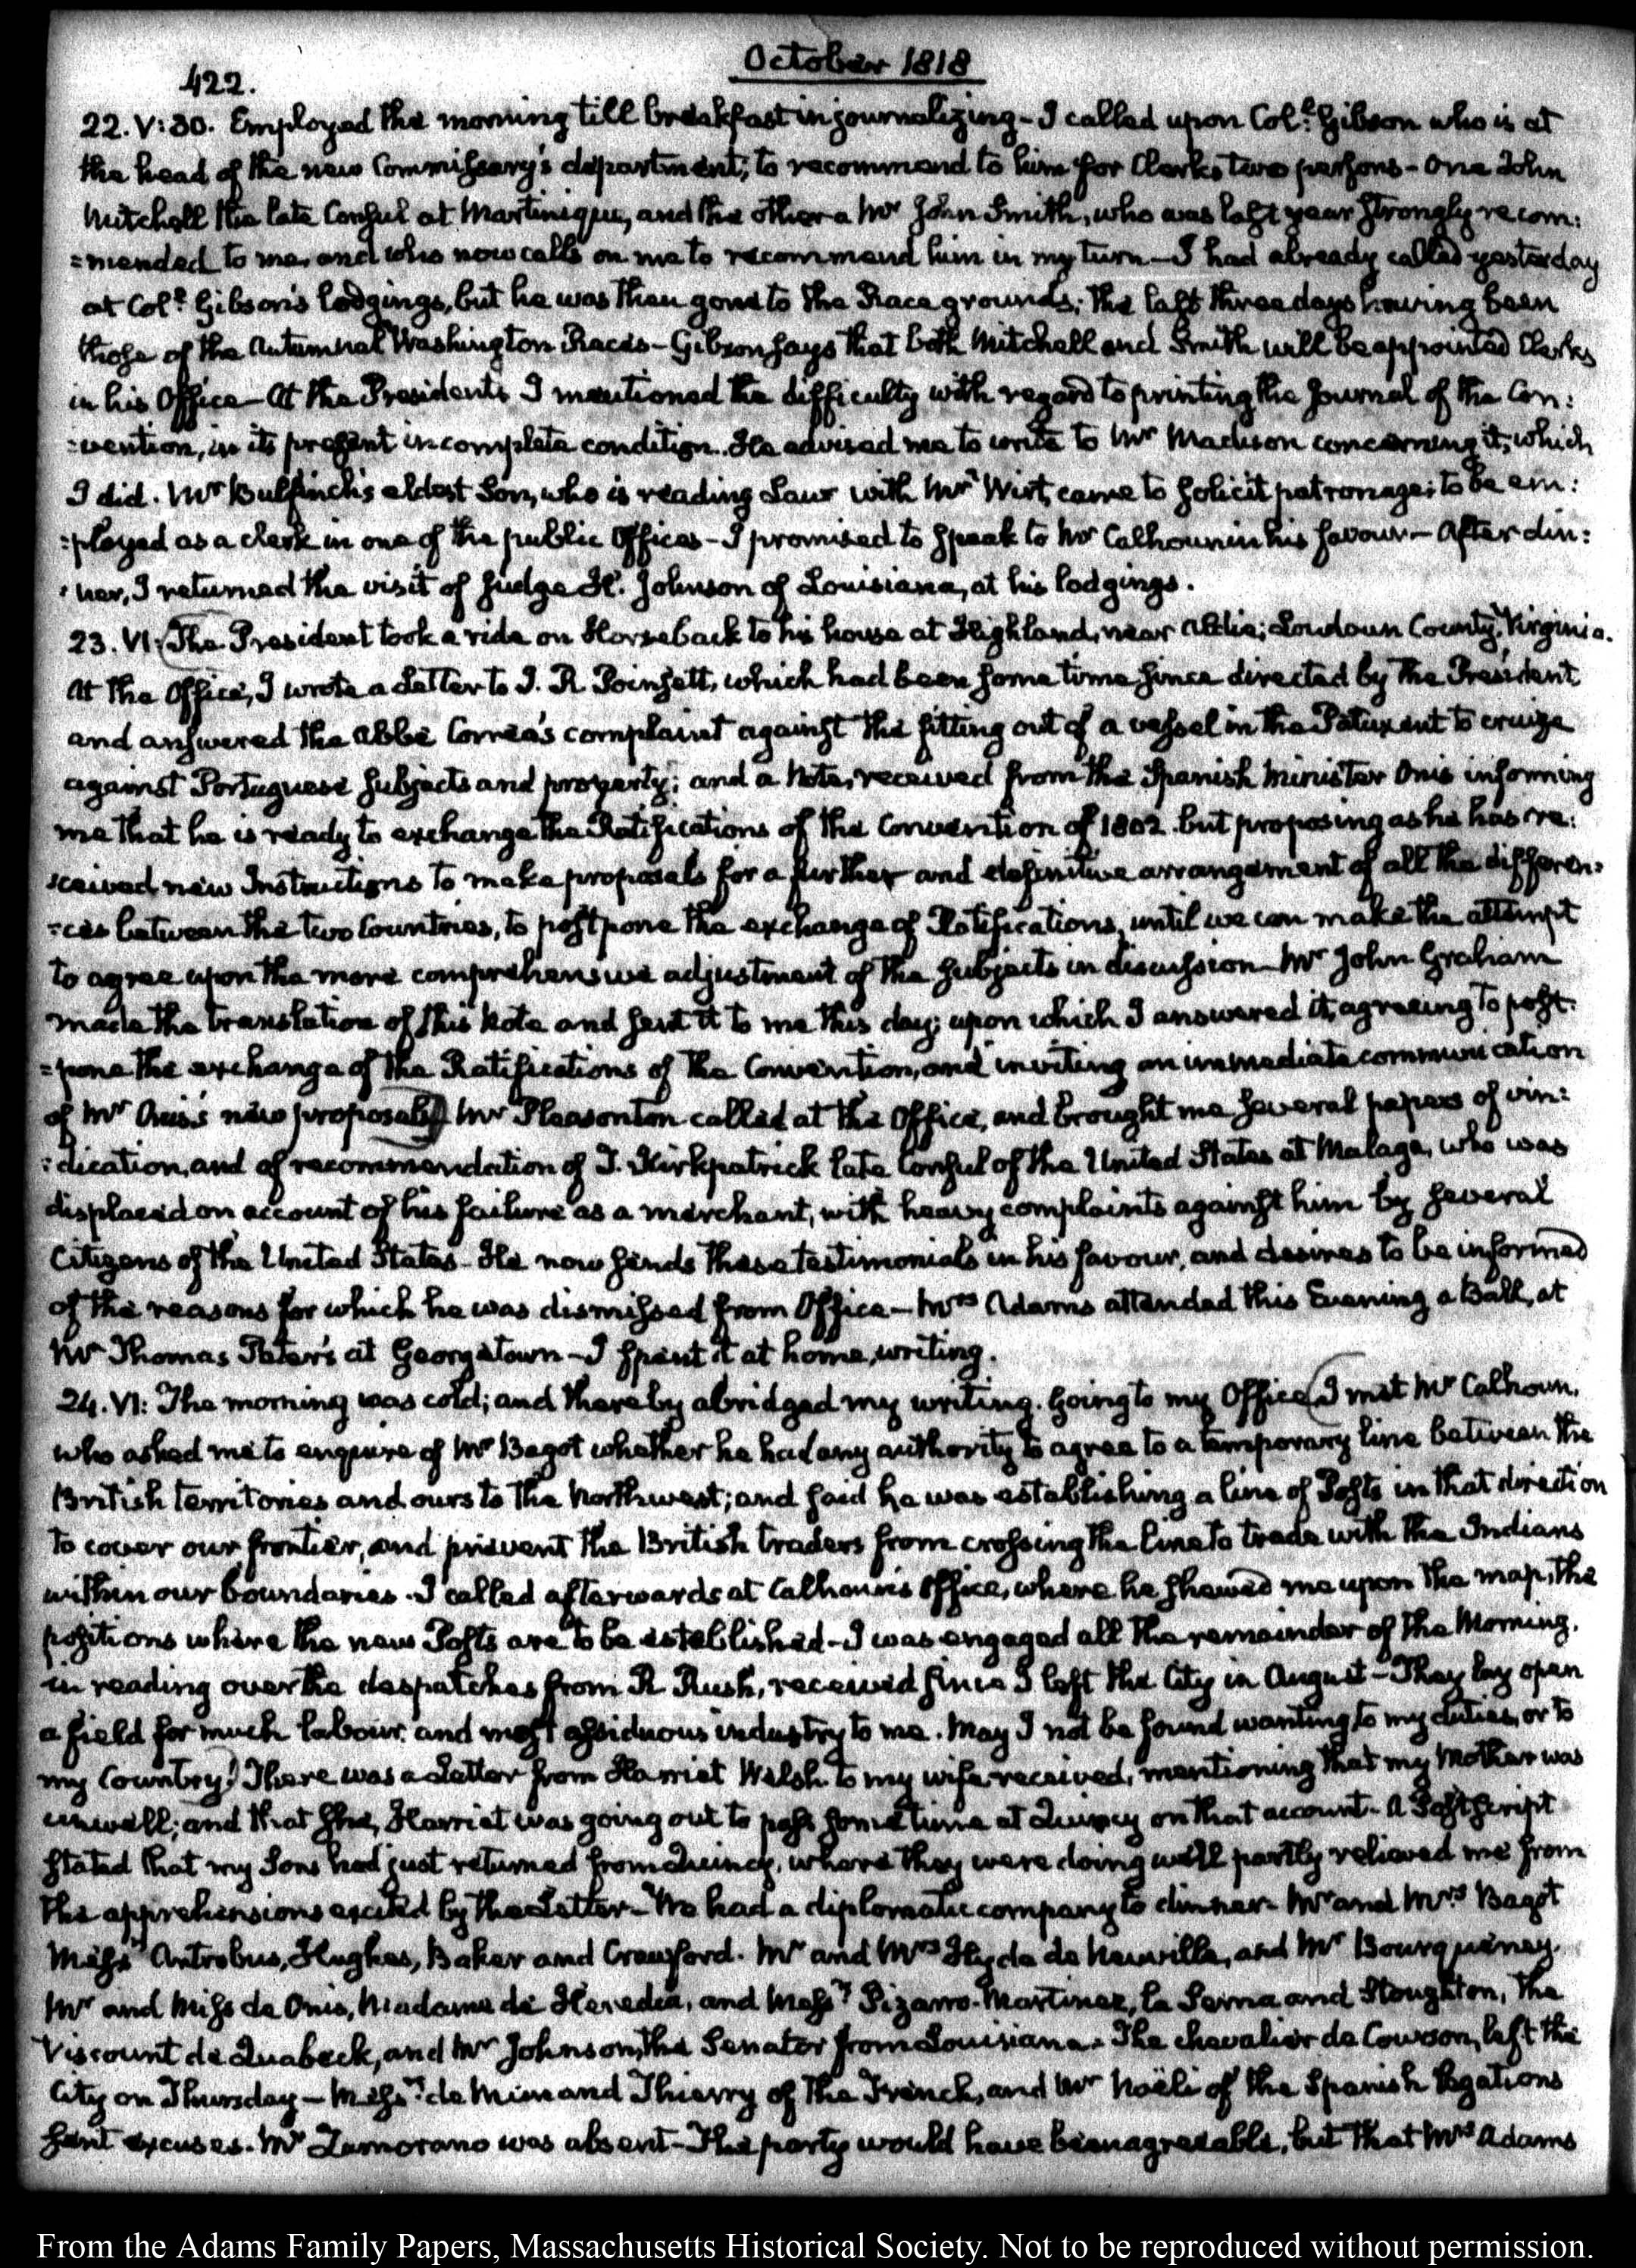 October 1818
422.
22. V:30. Employed the morning till breakfast in journalizing - I called upon Col.l Gibson who is at
the head of the new Commissary's department; to recommend to him for Clerks two persons - One John
Mitchell the late Consul at Martinique, and the other a Mr John Smith, who was last year strongly recom:
=mended to me, and who now calls on me to recommend him in my turn - I had already called yesterday
at Col.l Gibson's lodgings, but he was then gone to the Race grounds; the last three days having been
those of the Autumnal Washington Races - Gibson says that both Mitchell and Smith will be appointed Clerks
in his Office - At the Presidents I mentioned the difficulty with regard to printing the Journal of the Con:
=vention, in its present incomplete condition. He advised me to write to Mr Madison concerning it; which
I did. Mr Bulfinch's eldest Son, who is reading Law with Mr Wirt, came to solicit patronage; to be em:
:ployed as a clerk in one of the public Offices - I promised to speak to Mr Calhoun in his favour - After din:
:ner, I returned the visit of Judge H. Johnson of Louisiana, at his lodgings.
23. VI: The President took a ride on Horseback to his house at Highland, near Aldie; Loudoun County, Virginia.
At the Office, I wrote a Letter to J. R. Poinsett, which had been some time since directed by the President,
and answered the Abbé Correa's complaint against the fitting out of a vessel in the Patuxent to cruize
against Portuguese subjects and property; and a Note, received from the Spanish Minister Onis informing
me that he is ready to exchange the Ratifications of the Convention of 1802. but proposing as he has re:
:ceived new Instructions to make proposals for a further and definitive arrangement of all the differen:
:ces between the two Countries, to postpone the exchange of Ratifications, until we can make the attempt
to agree upon the more comprehensive adjustment of the subjects in discussion - Mr John Graham
made the translation of this Note and sent it to me this day; upon which I answered it, agreeing to post:
=pone the exchange of the Ratifications of the Convention, and inviting an immediate communication
of Mr Onis's new proposals) Mr Pleasonton called at the Office, and brought me several papers of vin:
:dication, and of recommendation of J. Kirkpatrick late Consul of the United States at Malaga, who was
displaced on account of his failure as a merchant, with heavy complaints against him by several
Citizens of the United States - He now sends these testimonials in his favour, and desires to be informed
of the reasons for which he was dismissed from Office - Mrs Adams attended this Evening a Ball, at
Mr Thomas Peter's at Georgetown - I spent it at home, writing.
24. VI: The morning was cold; and thereby abridged my writing. Going to my Office (I met Mr Calhoun,
who asked me to enquire of Mr Bagot whether he had any authority to agree to a temporary line between the
British territories and ours to the Northwest; and said he was establishing a line of Posts in that direction
to cover our frontier, and prevent the British traders from crossing the line to trade with the Indians
within our boundaries. I called afterwards at Calhoun's Office, where he shewed me upon the map, the
positions where the new Posts are to be established - I was engaged all the remainder of the Morning,
in reading over the despatches from R. Rush, received since I left the City in August - They lay open
a field for much labour, and most assiduous industry to me. May I not be found wanting to my duties, or to
my Country!) There was a Letter from Harriet Welsh to my wife received, mentioning that my Mother was
unwell; and that she, Harriet was going out to pass some time at Quincy on that account - A Postscript
stated that my Sons had just returned from Quincy, where they were doing well partly relieved me from
the apprehensions excited by the Letter - We had a diplomatic company to dinner - Mr and Mrs Bagot
Messrs Antrobus, Hughes, Baker and Crawford. Mr and Mrs Hyde de Neuville, and Mr Bourqueney.
Mr and Miss de Onis, Madame de Heredia, and Messrs Pizarro-Martinez, la Serna and Stoughton, The
Viscount de Quabeck, and Mr Johnson, the Senator from Louisiana - The chevalier de Courson, left the
City on Thursday - Messrs de Mun and Thierry of the French, and Mr Noëli of the Spanish Legations
sent excuses. Mr Zamorano was absent - The party would have been agreeable, but that Mrs Adams
From the Adams Family Papers, Massachusetts Historical Society. Not to be reproduced without permission.